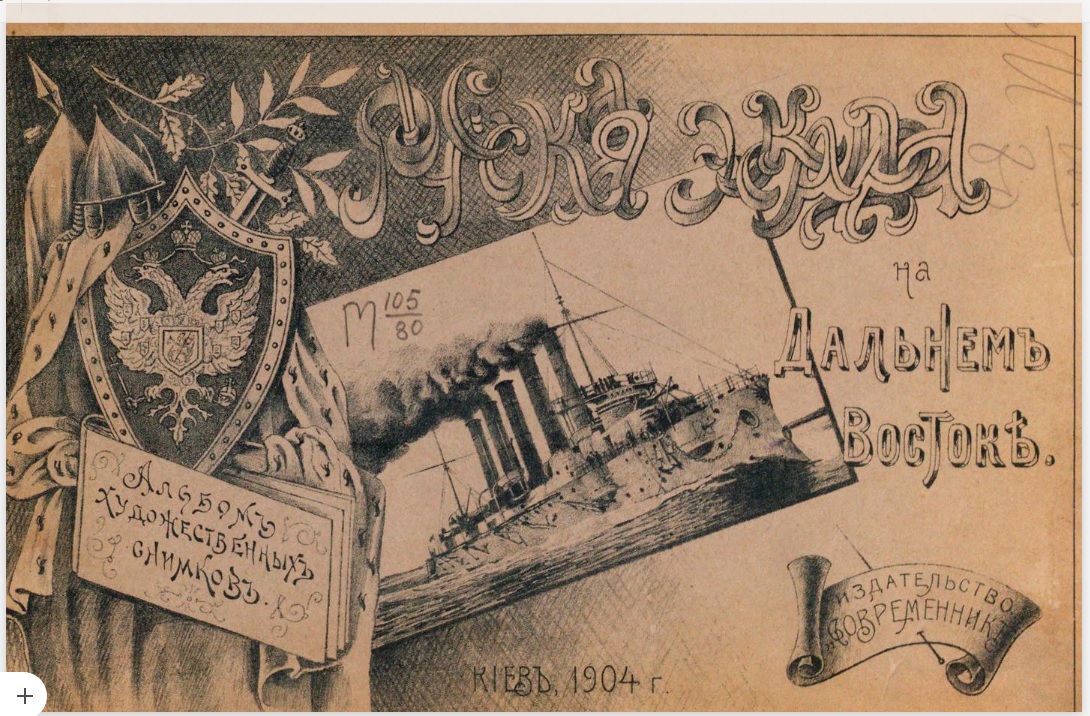 Русская Эскадра
на
Дальнемъ
Востокѣ.
105
80
Альбомъ
художественныхъ
снимковъ.
Издательство
„Современникъ“
КІЕВЪ, 1904 г.